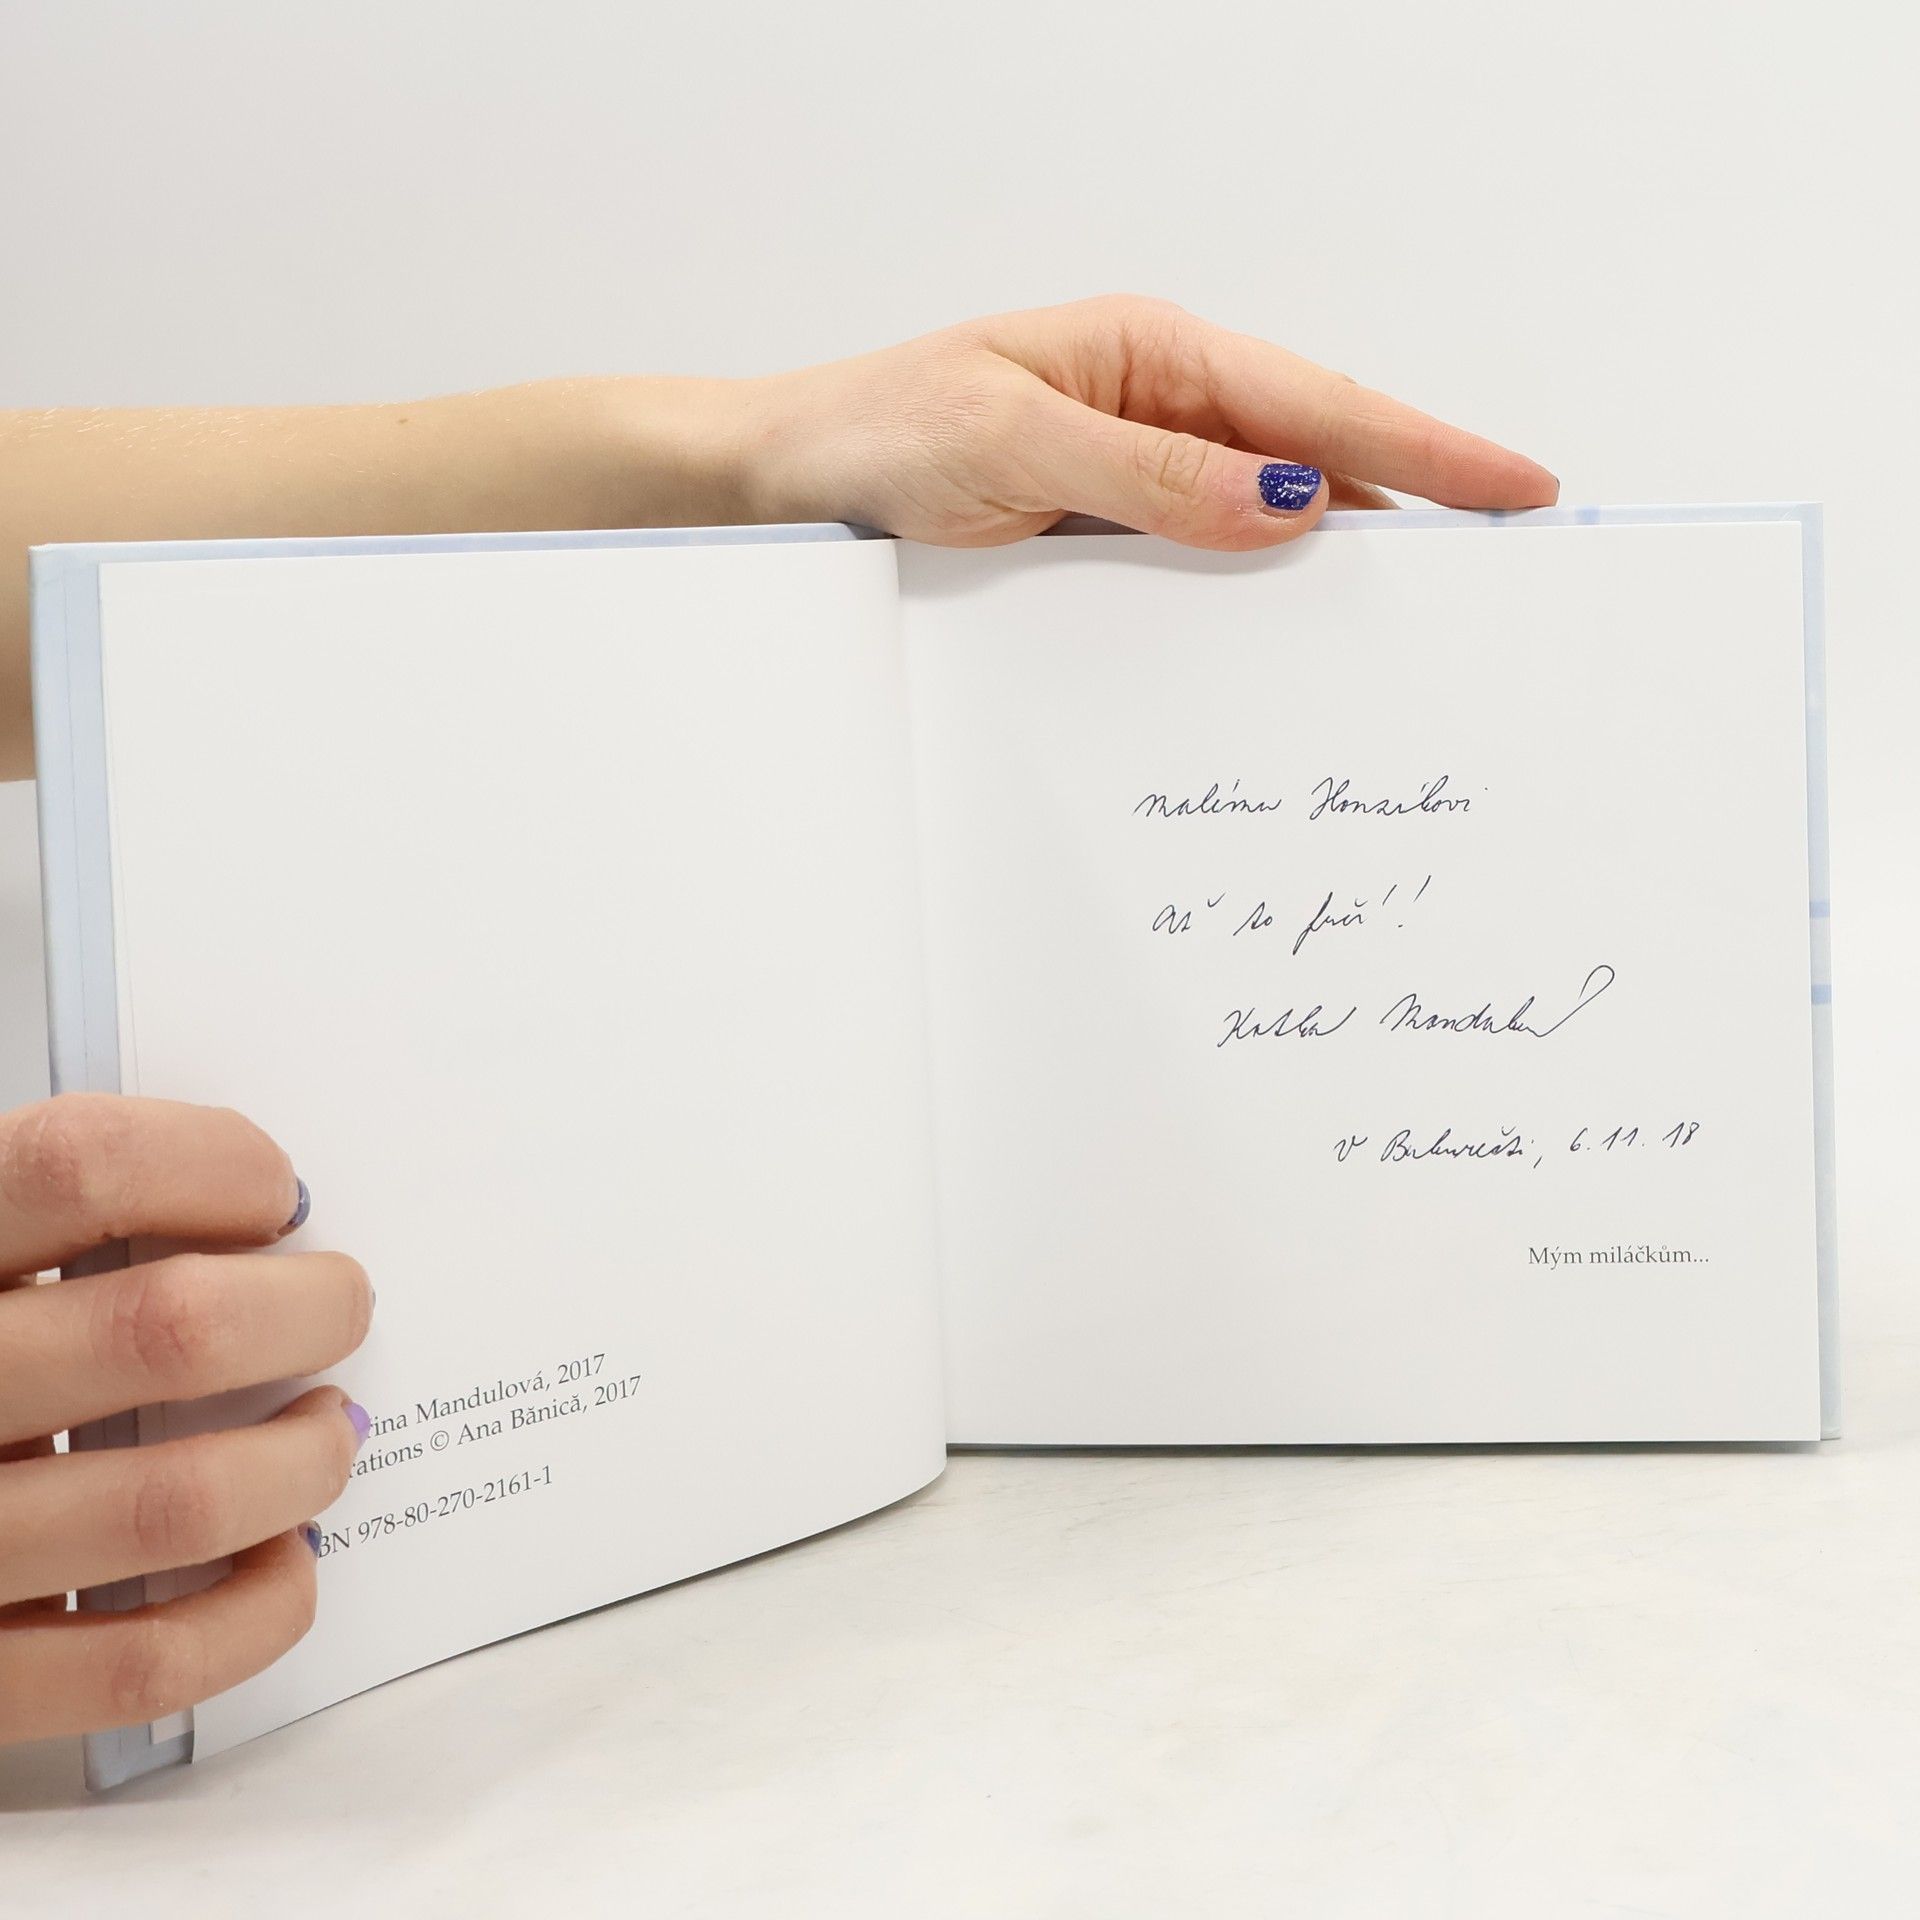 rina Mandulová, 2017
rations © Ana Bănică, 2017
BN 978-80-270-2161-1
Malému Honzíkovi
Ať to fičí!
Katka Mandulová
V Bukurešti, 6.11.18
Mým miláčkům...